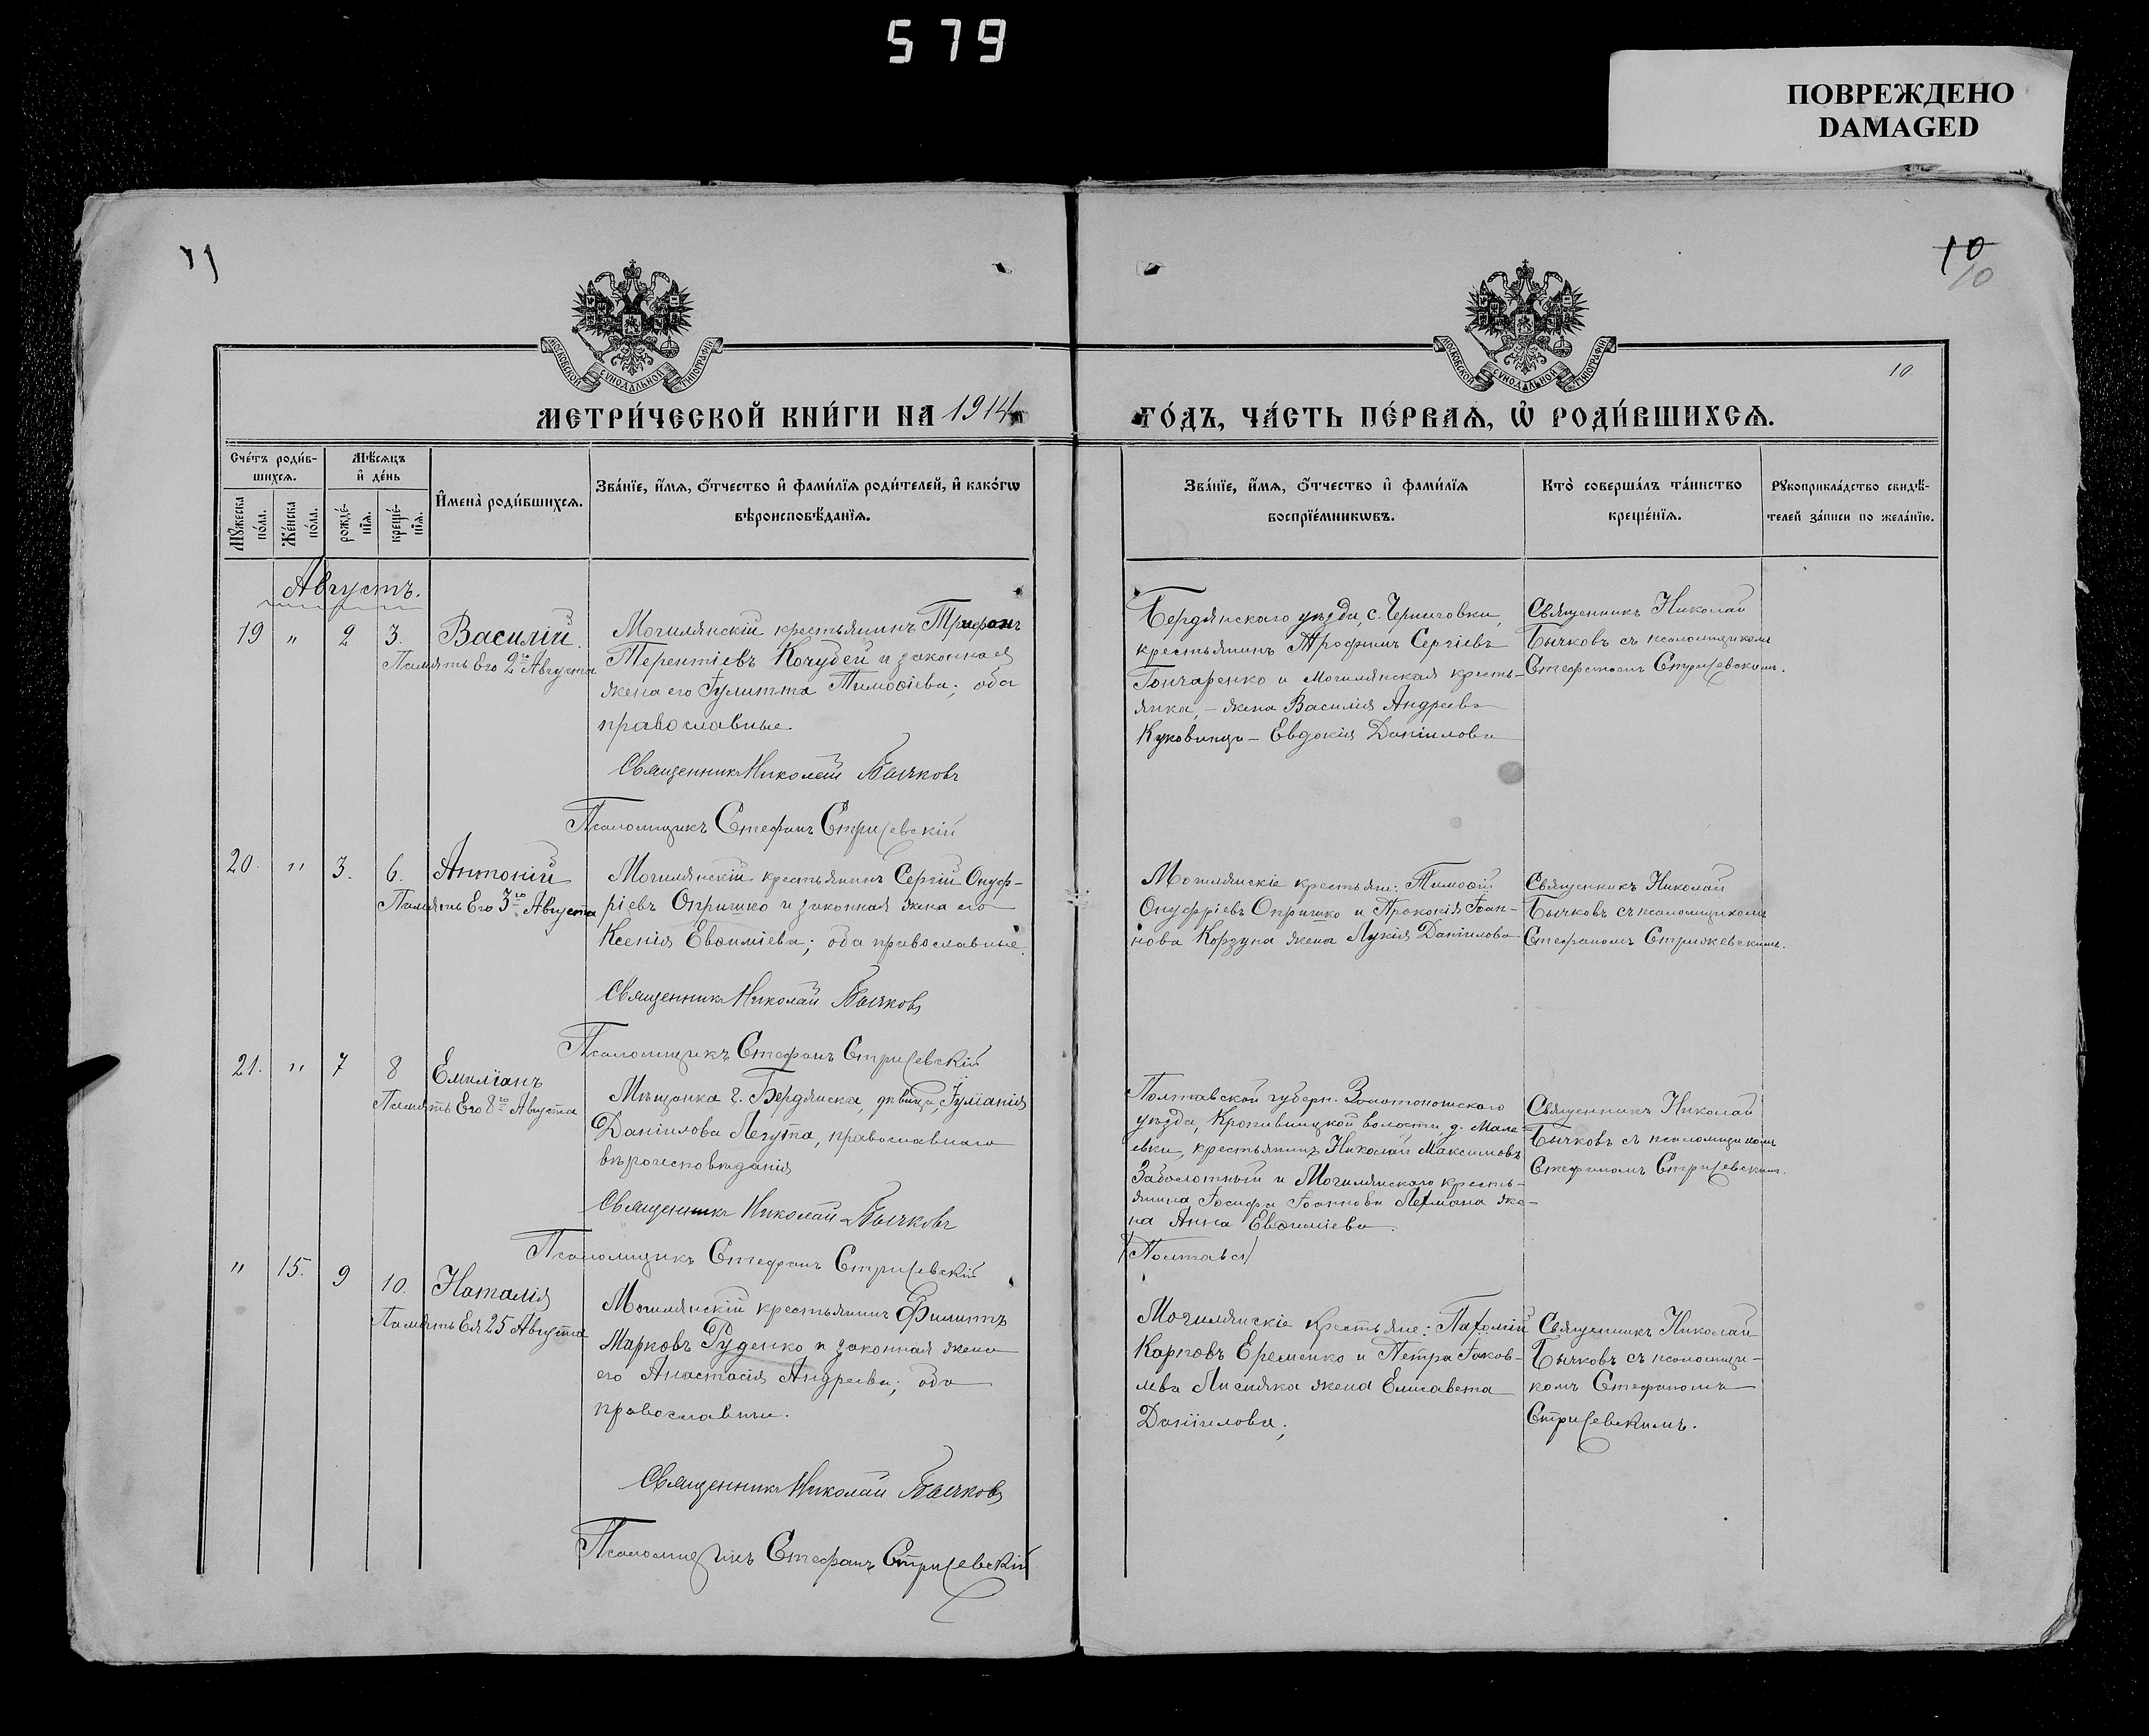 579
ПОВРЕЖДЕНО
DAMAGED
10
10
10
МОСКОВСКОЙ СѴНОДАЛЬНОЙ ТИПОГРАФІИ
МОСКОВСКОЙ СѴНОДАЛЬНОЙ ТИПОГРАФІИ
МЕТРИ́ЧЕСКОЙ КНИ́ГИ НА 1914
ГО́ДЪ, ЧА́СТЬ ПЕ́РВАѦ, Ѡ҆ РОДИ́ВШИХСѦ.
Сче́тъ роди́в-
шихсѧ.
Мѣ́сѧцъ
и҆ де́нь
Мꙋ́жеска
по́ла.
Же́нска
по́ла.
рожде́-
нїѧ.
креще́-
нїѧ.
И҆мена̀ роди́вшихсѧ.
Зва́нїе, и҆́мѧ, ѻ҆́тчество и҆ фами́лїѧ роди́телей, и҆ како́гѡ
вѣроисповѣ́данїѧ.
Зва́нїе, и҆́мѧ, ѻ҆́тчество и҆ фами́лїѧ
воспрїе́мникѡвъ.
Кто̀ соверша́лъ та́инство
креще́нїѧ.
Рꙋкоприкла́дство свидѣ́-
телей за́писи по жела́нїю.
Августъ.
19 " 2 3. Василій.
Память Его 2го Августа
Могилянскій крестьянинъ Трифонъ
Терентіевъ Кочубей и законная
жена его Іулитта Тимоѳіева; оба
православные.
Священникъ Николай Бычковъ
Псаломщикъ Стефанъ Стрижевскій
Бердянскаго уѣзда, с. Черниговки,
крестьянинъ Трофимъ Сергіевъ
Гончаренко и Могилянская кресть-
янка, – жена Василія Андреева
Куковинца – Евдокія Даніилова
Священникъ Николай
Бычковъ съ псаломщикомъ
Стефаномъ Стрижевскимъ.
20. " 3. 6. Антоній
Память Его 3го Августа
Могилянскій крестьянинъ Сергій Онуф-
ріевъ Опришко и законная жена его
Ксенія Евѳиміева; оба православные.
Священникъ Николай Бычковъ
Псаломщикъ Стефанъ Стрижевскій
Могилянскіе крестьяне: Тимоѳій
Онуфріевъ Опришко и Прокопія Іоан-
нова Корзуна жена Лукія Даніилова
Священникъ Николай
Бычковъ съ псаломщикомъ
Стефаномъ Стрижевскимъ.
21. " 7 8 Емиліанъ
Память Его 8го Августа
Мѣщанка г. Бердянска, дѣвица, Іуліанія
Даніилова Легута, православнаго
вѣроисповѣданія
Священникъ Николай Бычковъ
Псаломщикъ Стефанъ Стрижевскій
Полтавской губерн. Золотоношскаго
уѣзда, Кропивницкой волости, д. Мале-
евки, крестьянинъ Николай Максимовъ
Заболотный и Могилянскаго кресть-
янина Іосифа Іоаннова жe-
на Анна Евѳиміева.
Священникъ Николай
Бычковъ съ псаломщикомъ
Стефаномъ Стрижевскимъ.
" 15. 9 10. Наталія
Память Ея 25 Августа
Могилянскій крестьянинъ Филиппъ
Марковъ Руденко и законная жена
его Анастасія Андреева; оба
православные.
Священникъ Николай Бычковъ
Псаломщикъ Стефанъ Стрижевскій
Могилянскіе крестьяне: Пахомій
Карповъ Еременко и Петра Іаков-
лева Лисняка жена Елисавета
Даніилова;
Священникъ Николай
Бычковъ съ псаломщи-
комъ Стефаномъ
Стрижевскимъ.